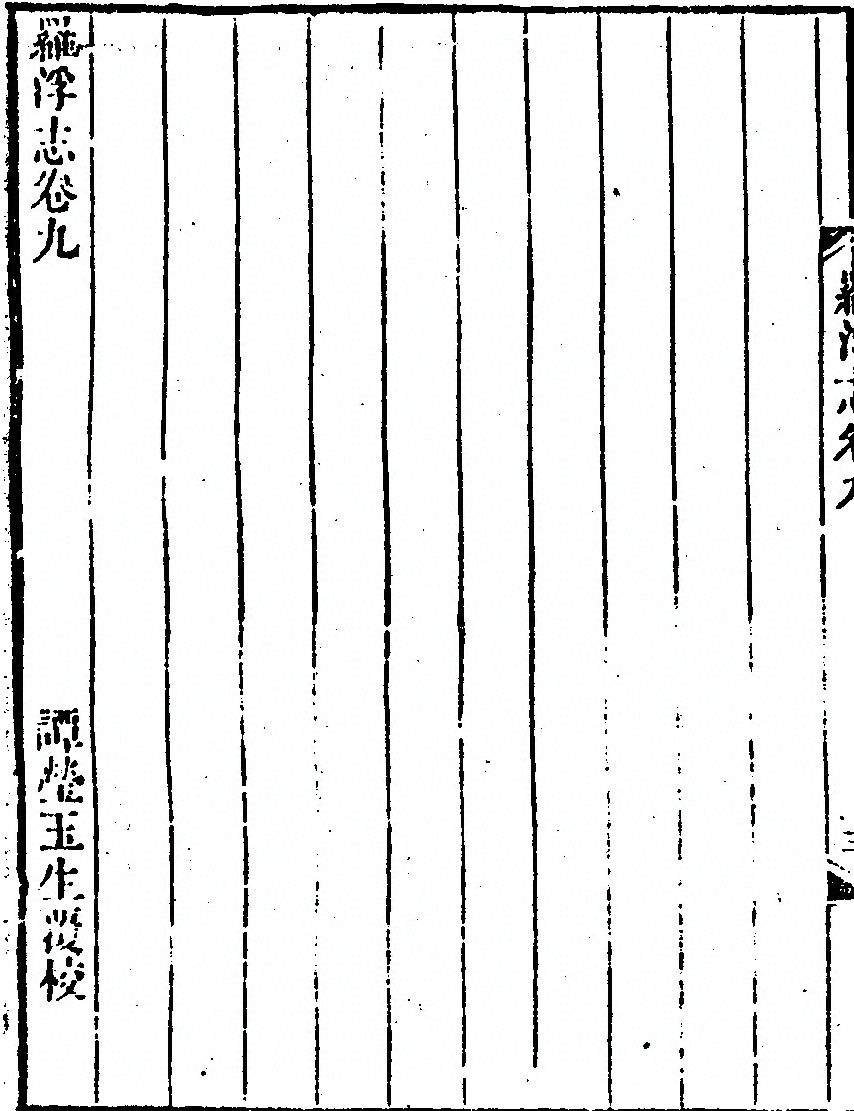 羅浮志卷九
羅浮志卷九
譚瑩玉生覆校